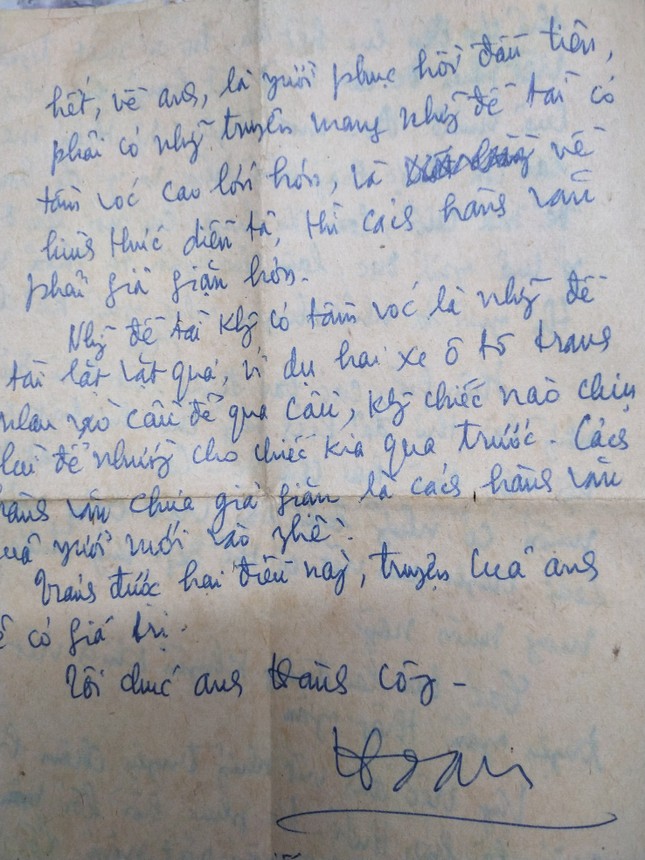 hết, về anh, là người phục hồi đầu tiên,
phải có những truyện mang những đề tài có
tầm vóc cao lớn hơn, và về
hình thức diễn tả, thì cách hành văn
phải già giặn hơn.
Những đề tài không có tầm vóc là những đề
tài lặt vặt quá, ví dụ hai xe ô tô tranh
nhau vào cầu để qua cầu, không chiếc nào chịu
lùi để nhường cho chiếc kia qua trước. Cách
hành văn chưa già giặn là cách hành văn
của người mới vào nghề.
Tránh được hai điều này, truyện của anh
có giá trị.
Tôi chúc anh thành công -